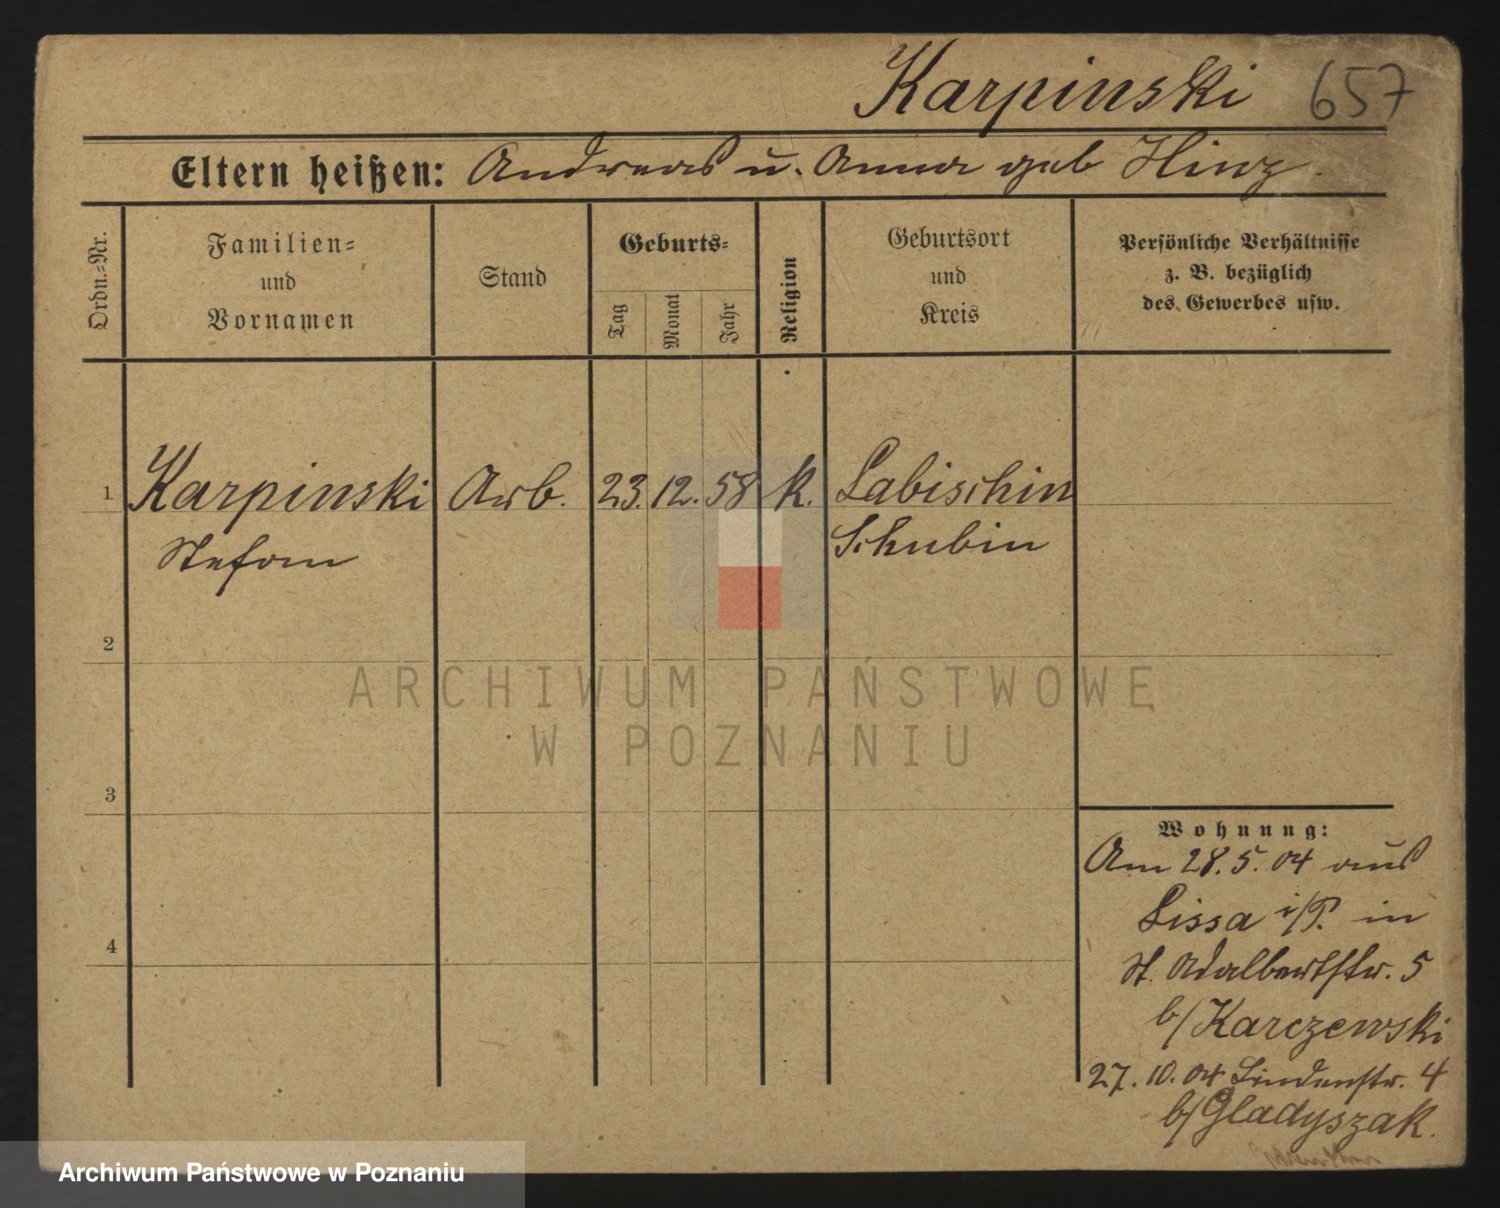 Karpinski 657
Eltern heißen: Andreas u. Anna geb Hinz.
Ordn.=Nr.
Familien=
und
Vornamen
Stand
Geburts=
Tag
Monat
Jahr
Religion
Geburtsort
und
Kreis
Persönliche Verhältnisse
z. B. bezüglich
des Gewerbes usw.
1 Karpinski Arb. 23. 12. 58 k. Labischin
Stefan Schubin
2
3
4
Wohnung:
Am 28.5.04 aus
Lissa i/P. in
St. Adalbertstr. 5
b/Karczewski
27.10.04 Lindenstr. 4
b/Gladyszak.
ARCHIWUM PAŃSTWOWE
W POZNANIU
Archiwum Państwowe w Poznaniu